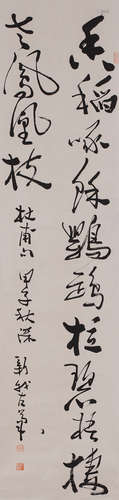 香稻啄餘鸚鵡粒碧梧棲
老鳳凰枝
杜甫句 甲子秋深 新我左筆